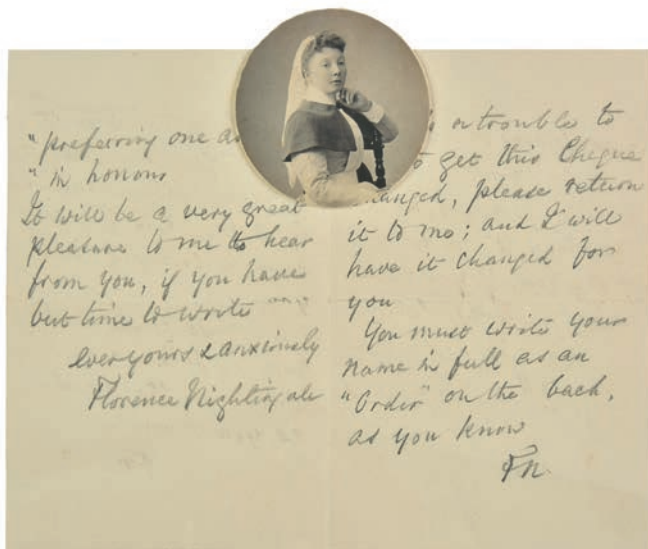 "preferring one a
"in honour
It will be a very great
pleasure to me to hear
from you, if you have
but time to write
ever yours & anxiously
Florence Nightingale
a trouble to
to get this Cheque
changed, please return
it to me; and I will
have it changed for
you
You must write your
name in full as an
"Order" on the back,
as you know
FN.